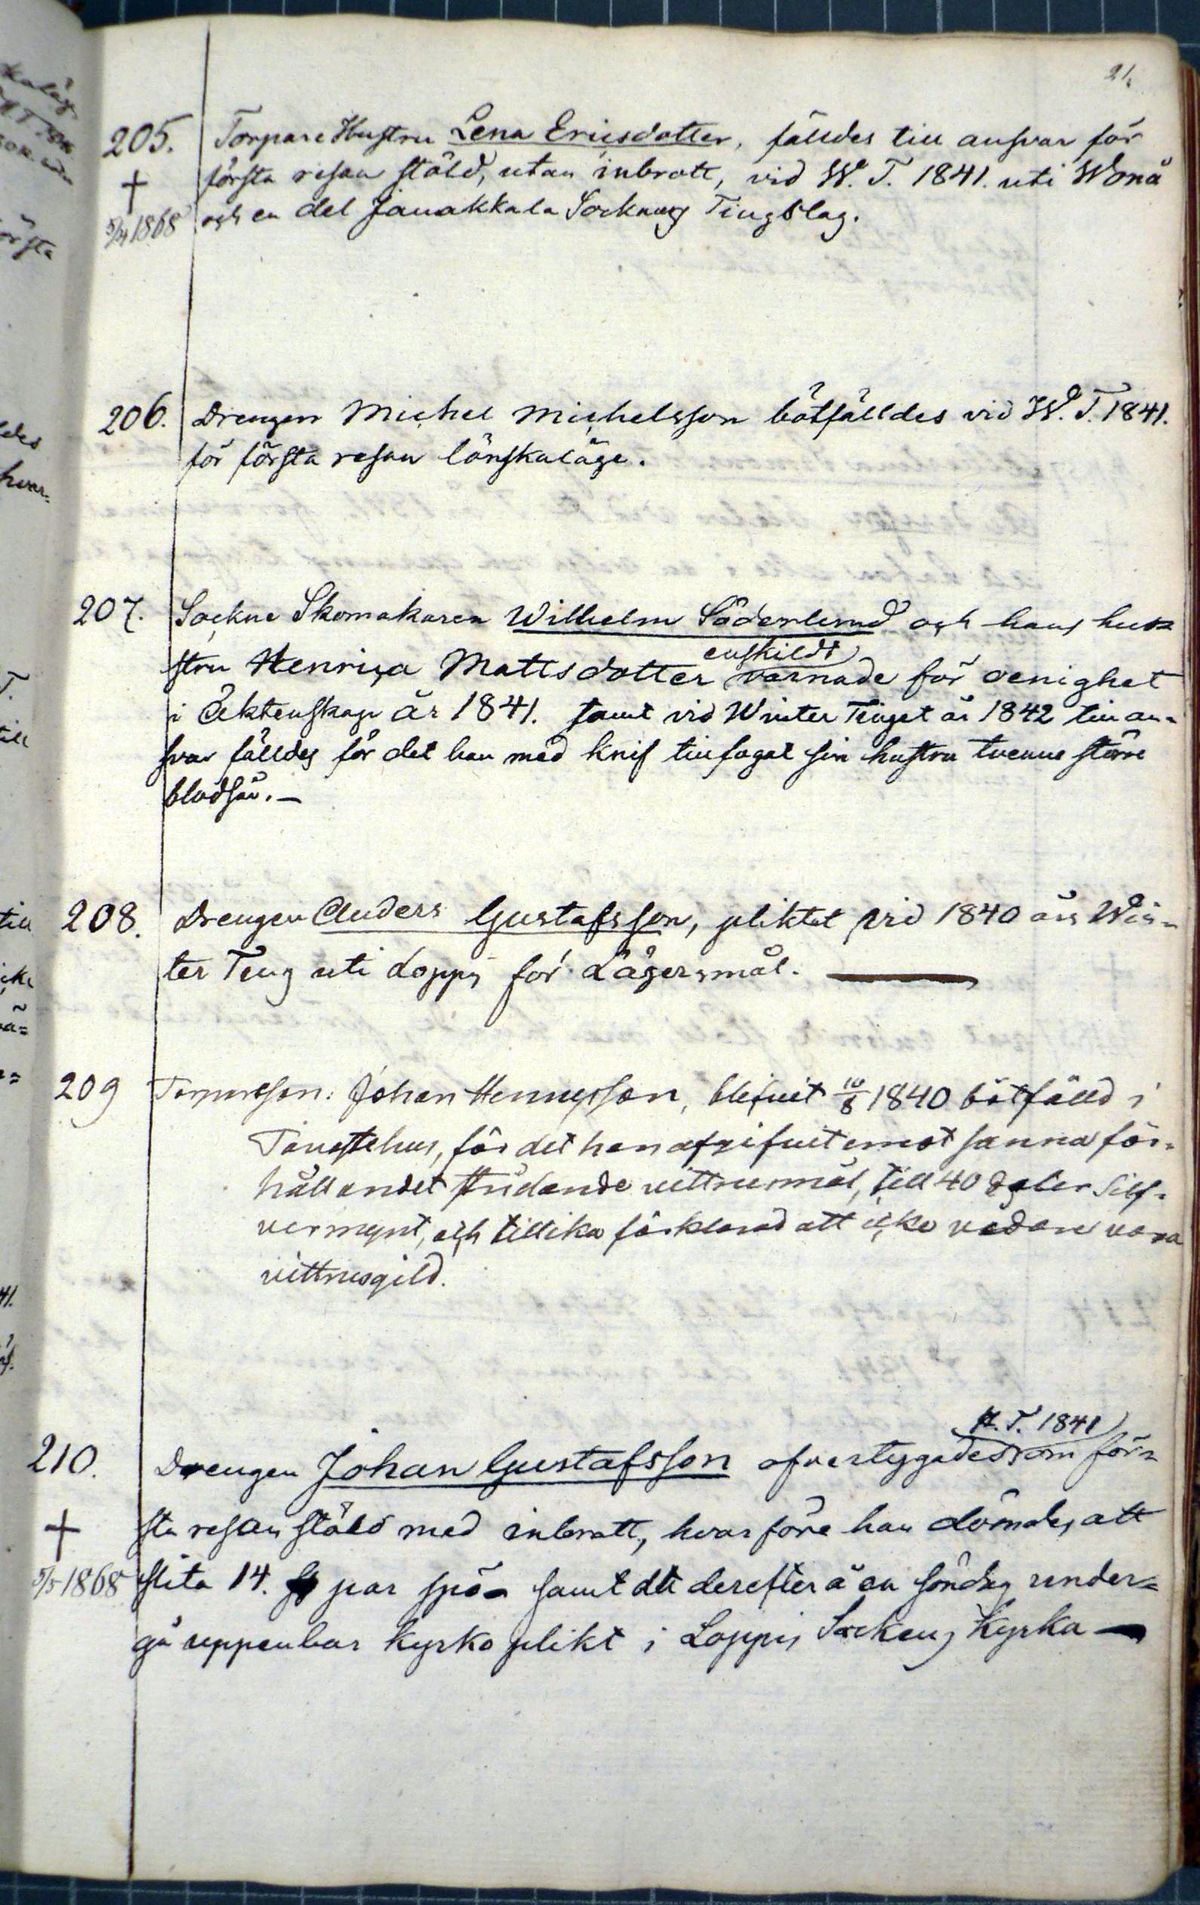 21.
205. Torpare Hustru Lena Ericsdotter, fälldes till ansvar för
† första resan stöld, utan inbrott, vid W. T. 1841. uti Wonå
5/4 1868 och en del Janakkala Sockens Tingslag.
206. Drengen Michel Michelsson bötfälldes vid W. T. 1841.
för första resan lönskaläge.
207. Sockne Skomakaren Wilhelm Söderlund och hans hu-
enskildt
stru Henrica Mattsdotter varnade för oenighet
i Äktenskap år 1841. samt vid Winter Tinget år 1842 till an-
svar fälldes för det han med knif tillfogat sin hustru tvenne större
blodsår. —
208. Drengen Anders Gustafsson, pliktat vid 1840 års Win-
ter Ting uti Loppis för Lägersmål. —
209 Torpareson: Johan Henricsson, blifvit 10/8 1840 bötfälld i
Tavastehus, för det han afgifvit emot sanna för-
hållandet stridande vittnesmål, till 40 daler Silf-
vermynt, och tillika förklarad att icke vidare vara
vittnesgild.
H. T. 1841
210. Drengen Johan Gustafsson öfvertygades om för-
† sta resan stöld med inbrott, hvarföre han dömdes att
5/5 1868 slita 14. par spö samt att derefter å en söndag under-
gå uppenbar Kyrko plikt i Loppis Sockens Kyrka —